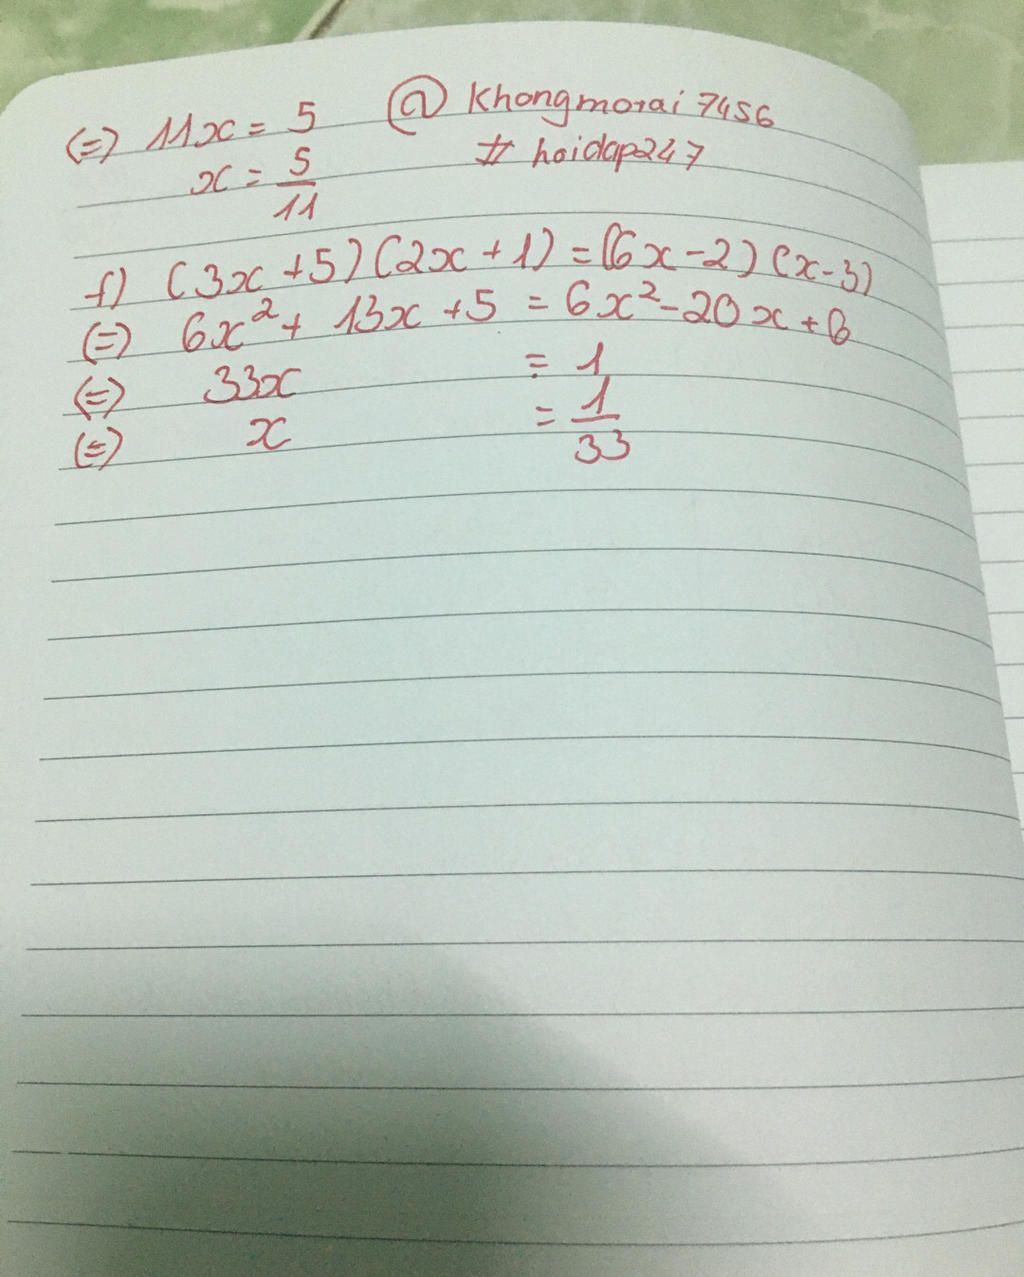 (=) 11x = 5 @ Khongmorai 7456
x = 5/11 # hoidap247
f) (3x + 5) (2x + 1) = (6x - 2) (x - 3)
(=) 6x² + 13x + 5 = 6x² - 20x + 6
(=) 33x = 1
(=) x = 1/33